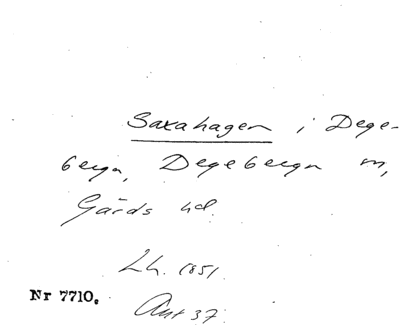 Saxahagen i Dege-
berga, Degeberga sn,
Gärds hd.
Lh. 1851.
Nr 7710.
Ant 37.